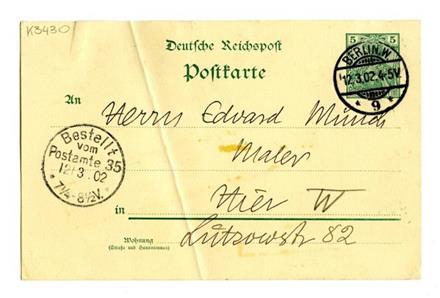 K3430
Deutsche Reichspost
Postkarte
5 5
BERLIN.W.
12.3.02.4-5V.
* 9 *
An Herrn Edvard Munch
Maler
Bestellt
vom
Postamte 35
12/3.02
7¼-8½V.
in Hier W
Wohnung
(Straße und Hausnummer)
Lützowstr 82